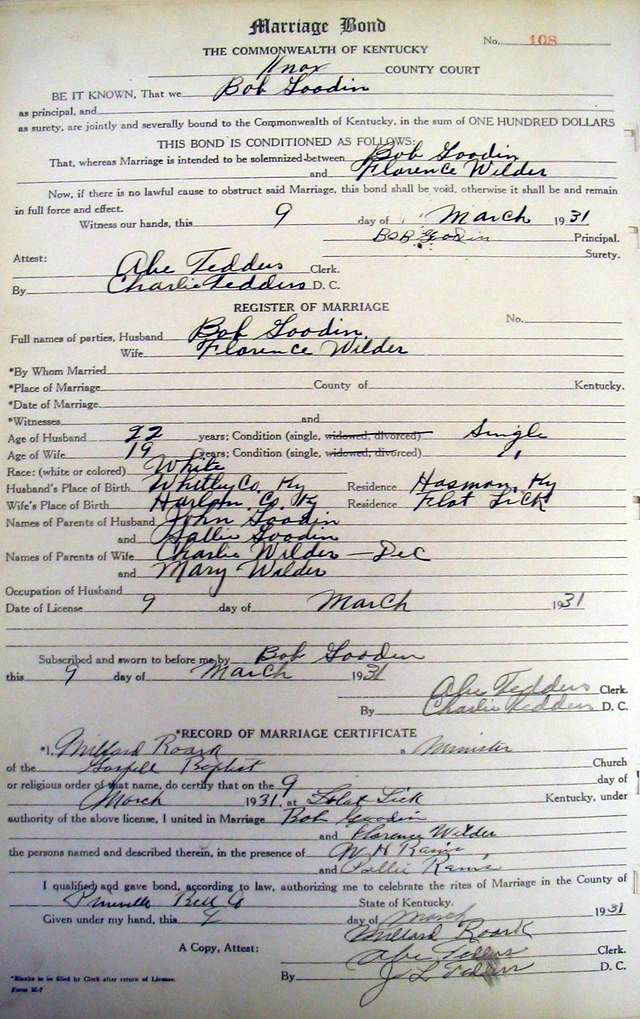 Marriage Bond
No. 108
THE COMMONWEALTH OF KENTUCKY
Knox COUNTY COURT
BE IT KNOWN, That we Bob Goodin
as principal, and
as surety, are jointly and severally bound to the Commonwealth of Kentucky, in the sum of ONE HUNDRED DOLLARS
THIS BOND IS CONDITIONED AS FOLLOWS:
That, whereas Marriage is intended to be solemnized between Bob Goodin
and Florence Wilder
Now, if there is no lawful cause to obstruct said Marriage, this bond shall be void, otherwise it shall be and remain
in full force and effect.
Witness our hands, this 9 day of March 1931
Bob Goodin Principal.
Surety.
Attest:
Abe Tedders Clerk.
By Charlie Tedders D. C.
REGISTER OF MARRIAGE
No.
Full names of parties, Husband Bob Goodin
Wife Florence Wilder
*By Whom Married
*Place of Marriage County of Kentucky.
*Date of Marriage
*Witnesses and
Age of Husband 22 years; Condition (single, widowed, divorced) Single
Age of Wife 19 years; Condition (single, widowed, divorced) "
Race: (white or colored) White
Husband's Place of Birth Whitley Co, Ky Residence Hasman, Ky
Wife's Place of Birth Harlan Co. Ky Residence Flat Lick
Names of Parents of Husband John Goodin
and Sallie Goodin
Names of Parents of Wife Charlie Wilder - Dec
and Mary Wilder
Occupation of Husband
Date of License 9 day of March 1931
Subscribed and sworn to before me by Bob Goodin
this 9 day of March 1931
Abe Tedders Clerk.
By Charlie Tedders D. C.
*RECORD OF MARRIAGE CERTIFICATE
*I, Millard Roark a Minister
of the Gospell Baptist Church
or religious order of that name, do certify that on the 9 day of
March 1931, at Flat Lick Kentucky, under
authority of the above license, I united in Marriage Bob Goodin
and Florence Wilder
the persons named and described therein, in the presence of W H Rains
and Rains
I qualified and gave bond, according to law, authorizing me to celebrate the rites of Marriage in the County of
Pineville Bell Co State of Kentucky.
Given under my hand, this 9 day of March 1931
Millard Roark
Abe Tedders Clerk.
A Copy, Attest:
By J L Tedders D. C.
*Blanks to be filled by Clerk after return of License.
Form M-7